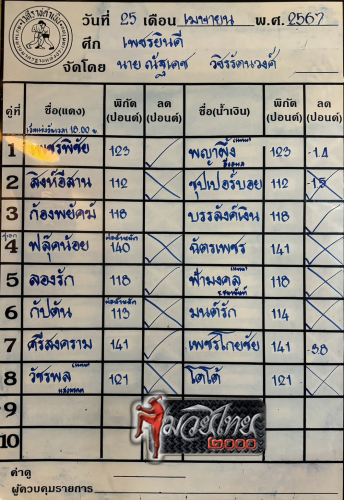 วันที่ 25 เดือน เมษายน พ.ศ. 2567
ศึก เพชรยินดี
จัดโดย นาย ณัฐเดช วชิรรัตนวงศ์
คู่ที่ ชื่อ(แดง) พิกัด (ปอนด์) ลด (ปอนด์) ชื่อ(น้ำเงิน) พิกัด (ปอนด์) ลด (ปอนด์)
1 เพชรพิชัย 123 พญาผึ้ง 123 -1.4
2 สิงห์อีสาน 112 ซุปเปอร์บอย 112 -1.5
3 ก้องพยัคฆ์ 118 บรรลังค์เงิน 118
4 ฟลุ๊คน้อย 140 ฉัตรเพชร 141
5 ลองรัก 118 ฟ้ามงคล 118
6 กัปตัน 113 มนต์รัก 114
7 ศรีสงคราม 141 เพชรโกยชัย 141 -3.8
8 วัชรพล 121 โตโต้ 121
9
10
มวยไทย
๒๐๐๐
คำดู
ผู้ควบคุมรายการ